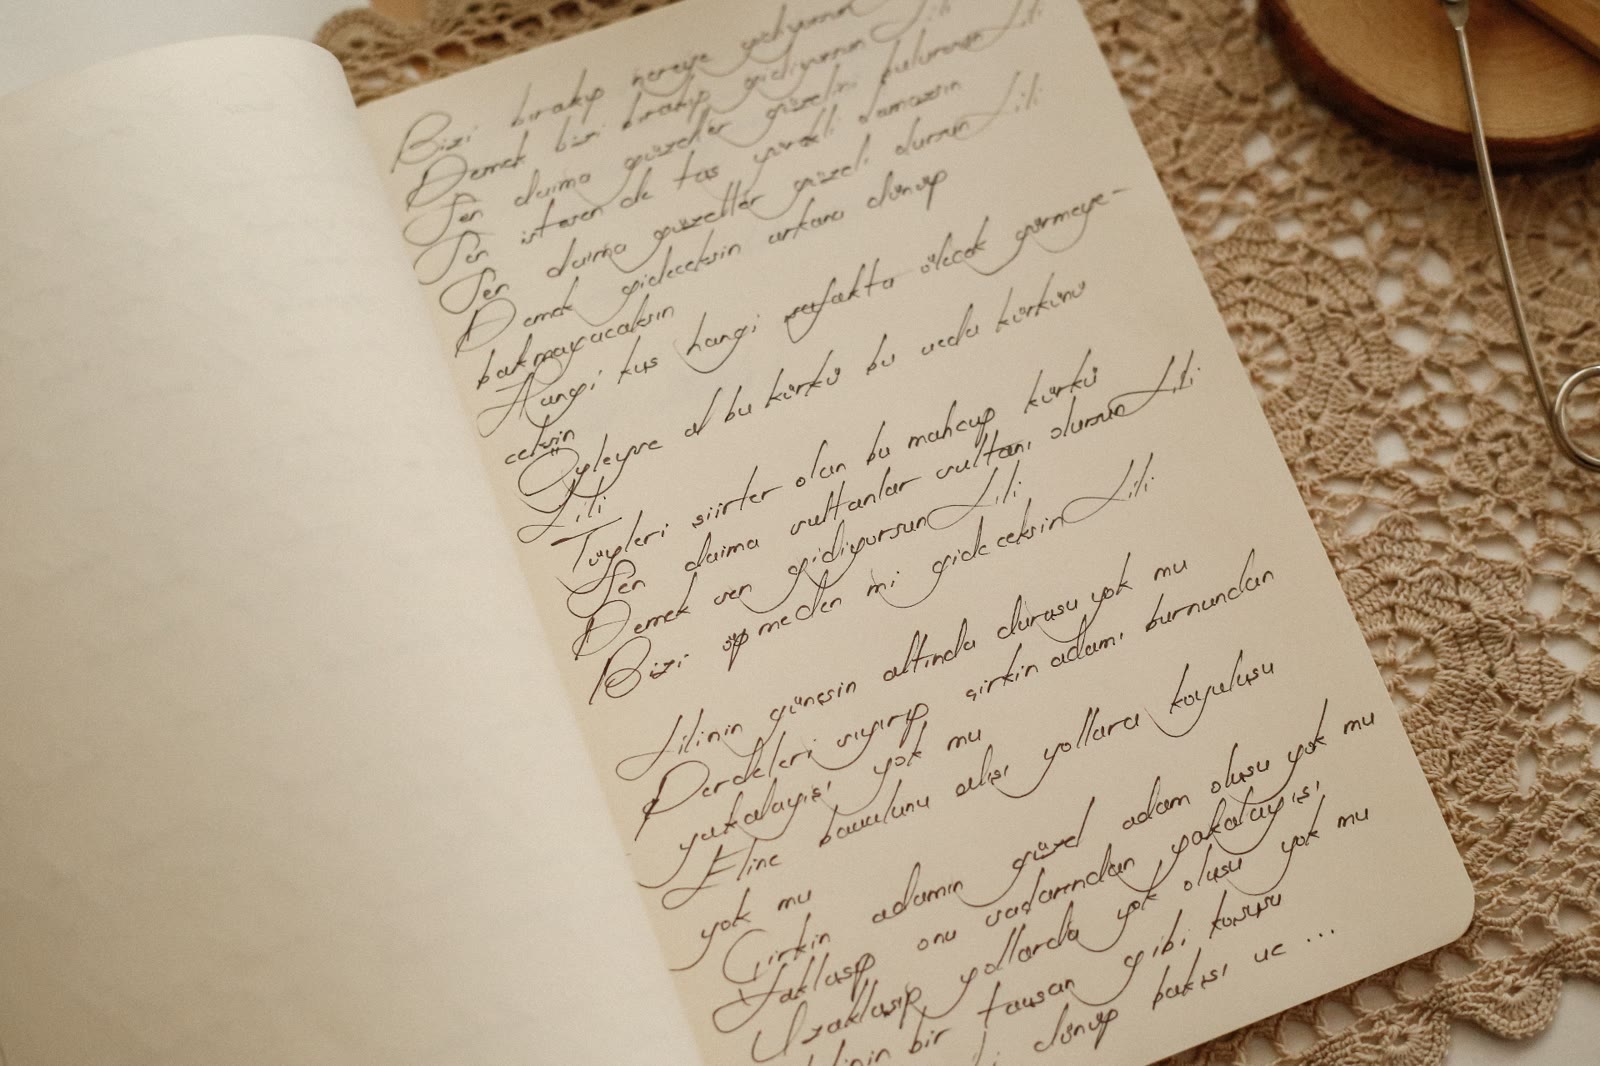 Bizi bırakıp nereye gidiyorsun Lili
Demek bizi bırakıp gidiyorsun Lili
Sen daima güzeller güzelini bulursun Lili
Sen istesen de taş yürekli olamazsın
Sen daima güzeller güzeli olursun Lili
Demek gideceksin arkana dönüp
bakmayacaksın
Hangi kuş hangi şafakta ölecek görmeye-
ceksin
Öyleyse al bu kürkü bu veda kürkünü
Lili
Tüyleri şiirler olan bu mahcup kürkü
Sen daima sultanlar sultanı olursun Lili
Demek sen gidiyorsun Lili
Bizi öpmeden mi gideceksin Lili
Lilinin güneşin altında durusu yok mu
Perdeleri sıyırıp çirkin adamı burnundan
yakalayışı yok mu
Eline bavulunu alışı yollara koyuluşu
yok mu
Çirkin adamın güzel adam oluşu yok mu
Yaklaşıp onu saclarından yakalayışı
Uzaklaşıp yollarda yok oluşu yok mu
bir tavşan gibi koşuşu
dönüp bakışı ve ...